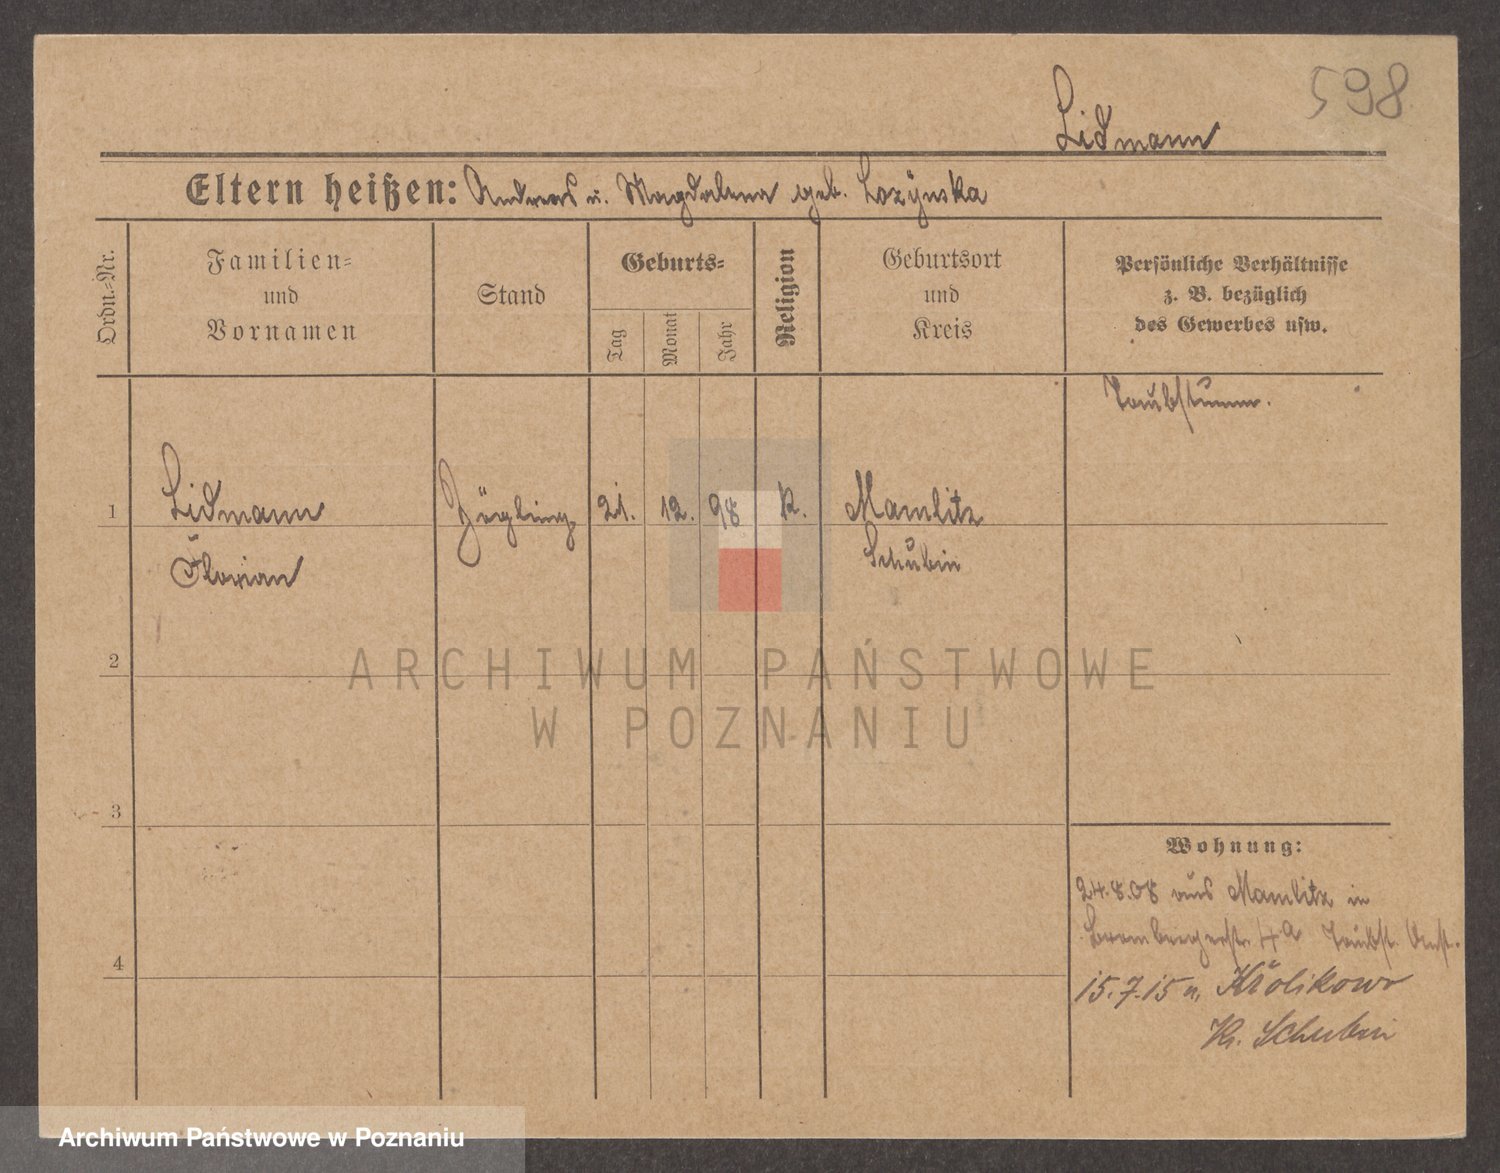 598
Lidmann
Eltern heißen: Andreas u. Magdalena geb. Lozynska
Ordn.-Nr.
Familien-
und
Vornamen
Stand
Geburts-
Tag
Monat
Jahr
Religion
Geburtsort
und
Kreis
Persönliche Verhältnisse
z. B. bezüglich
des Gewerbes usw.
Taubstumm.
1
Lidmann
Florian
Zögling
21. 12. 98
k.
Mamlitz
Schubin
2
ARCHIWUM PAŃSTWOWE
W POZNANIU
3
Wohnung:
24.8.08 aus Mamlitz in
Brombergerstr. 4a Taubst. Anst.
4
15.7.15 n. Krolikowo
Kr. Schubin
Archiwum Państwowe w Poznaniu